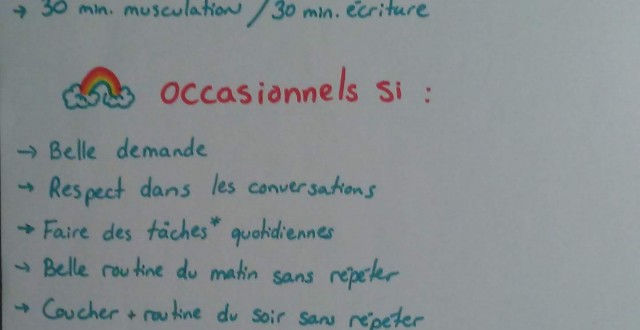 → 30 min. musculation / 30 min. écriture
occasionnels si :
→ Belle demande
→ Respect dans les conversations
→ Faire des tâches* quotidiennes
→ Belle routine du matin sans répéter
→ Coucher + routine du soir sans répéter